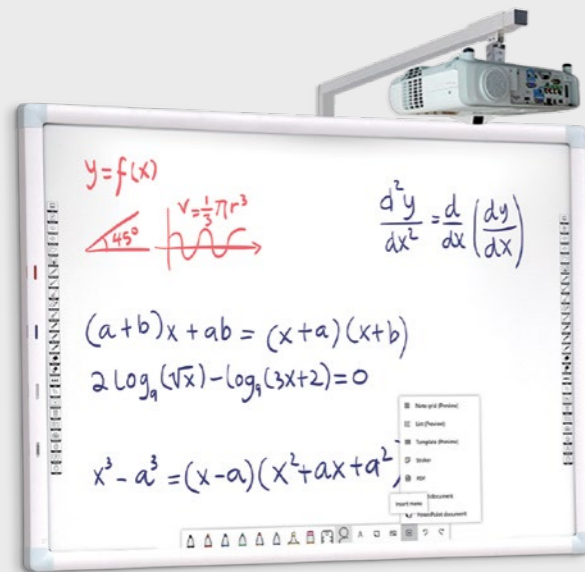 y=f(x)
V=⅓πr³
45°
d²y/dx² = d/dx (dy/dx)
(a+b)x+ab = (x+a)(x+b)
2log₉(√x)-log₉(3x+2)=0
x³-a³=(x-a)(x²+ax+a²)
Note grid (Preview)
List (Preview)
Template (Preview)
Sticker
PDF
document
Insert menu
PowerPoint document